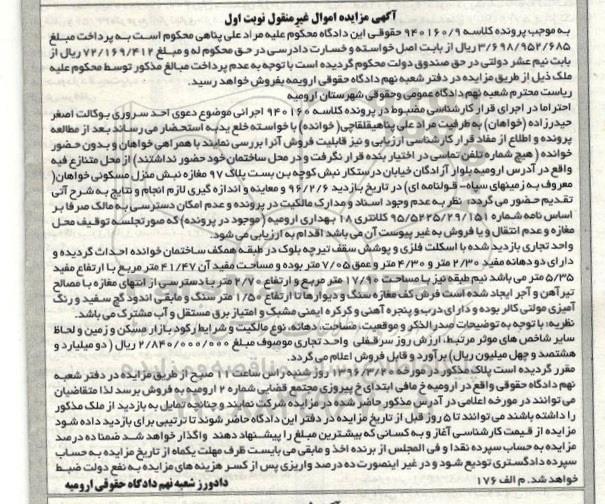 آگهی مزایده اموال غیرمنقول نوبت اول
به موجب پرونده کلاسه ۹۴۰۱۶۰/۹ حقوقی این دادگاه محکوم علیه مراد علی پناهی محکوم است به پرداخت مبلغ
۳/۶۹۸/۹۵۲/۶۸۵ ریال از بابت اصل خواسته و خسارت دادرسی در حق محکوم له و مبلغ ۷۲/۱۶۹/۴۱۲ ریال از
بابت نیم عشر دولتی در حق صندوق دولت محکوم گردیده است با توجه به عدم پرداخت مبالغ مذکور توسط محکوم علیه
ملک ذیل از طریق مزایده در دفتر شعبه نهم دادگاه حقوقی ارومیه بفروش خواهد رسید.
ریاست محترم شعبه نهم دادگاه عمومی وحقوقی شهرستان ارومیه
احتراما در اجرای قرار کارشناسی مضبوط در پرونده کلاسه ۹۴۰۱۶۰ اجرائی موضوع دعوی احد سروری بوکالت اصغر
حیدرزاده (خواهان) به طرفیت مراد علی پناهیقلقاچی( خوانده) با خواسته خلع یدبه استحضار می رساند بعد از مطالعه
پرونده و اطلاع از مفاد قرار کارشناسی ارزیابی و نیز قابلیت فروش آنرا بررسی نمایند با همراهی خواهان و بدون حضور
خوانده ( هیچ شماره تلفن تماسی در اختیار بنده قرار نگرفت و در محل ساختمان خود حضور نداشتند) از محل متنازع فیه
واقع در آدرس ارومیه بلوار آزادگان خیابان درستکار نبش کوچه بن بست پلاک ۹۷ مغازه نبش منزل مسکونی خواهان(
معروف به زمینهای سپاه- قولنامه ای) در تاریخ بازدید ۹۶/۲/۶ و معاینه و اندازه گیری لازم انجام و نتایج به شرح آتی
تقدیم حضور می گردد: نظر به عدم وجود اسناد و مدارک مالکیت در پرونده و عدم امکان دسترسی به مالک صرفا بر
اساس نامه شماره ۹۵/۵۲۲۵/۲۹/۱۵۱ کلانتری ۱۸ بهداری ارومیه (موجود در پرونده) که صورتجلسه توقیف محل
مغازه و عدم انتقال و یا فروش به غیر پیوست آن می باشد اقدام به ارزیابی می شود.
واحد تجاری بازدید شده با اسکلت فلزی و پوشش سقف تیرچه بلوک در طبقه همکف ساختمان خوانده احداث گردیده و
دارای دو دهانه مفید ۲/۳۰ متر و ۴/۳۰ متر و عمق ۷/۰۵ متر بوده و مساحت مفید آن ۴۱/۴۷ متر مربع با ارتفاع مفید
۵/۳۵ متر می باشد نیم طبقه نیز با مساحت ۱۷/۹۱ متر مربع و ارتفاع ۲/۷۰ متر با دسترسی از انتهای مغازه با مصالح
تیرآهن و آجر ایجاد شده است فرش کف مغازه سنگ و دیوارها تا ارتفاع ۱/۵۰ متر سنگ و مابقی اندود گچ سفید و رنگ
آمیزی مولتی کالر بوده و دارای درب و پنجره آهنی و کرکره ایمنی مشبک و امتیاز برق مستقل و آب مشترک می باشد.
نظریه: با توجه به توضیحات صدرالذکر و موقعیت ،مساحت ،دهانه، نوع مالکیت و شرایط رکود بازار مسکن و زمین و لحاظ
سایر شاخص های موثر مرتبط، ارزش روز سرقفلی واحد تجاری موصوف مبلغ ۲/۸۴۰/۰۰۰/۰۰۰ ریال ( دو میلیارد و
هشتصد و چهل میلیون ریال) برآورد و قابل فروش اعلام می گردد.
مقرر گردیده است پلاک مذکور در مورخه ۱۳۹۶/۳/۲۰ روز شنبه راس ساعت ۱۱ صبح از طریق مزایده در دفتر شعبه
نهم دادگاه حقوقی واقع در ارومیه خ مافی ابتدای خ پیروزی مجتمع قضایی شماره ۲ ارومیه به فروش برسد لذا متقاضیان
می توانند در مورخه اعلامی در آدرس مذکور حاضر شده در مزایده شرکت نمایند و چنانچه تمایل به بازدید از ملک مذکور
را داشته باشند می توانند تا ۵ روز قبل از تاریخ مزایده در دفتر این دادگاه حاضر شوند تا ترتیبی برای بازدید داده شود
مزایده از قیمت کارشناسی آغاز و به کسانی که بیشترین مبلغ را پیشنهاد دهند واگذار خواهد شد ضمنا ده درصد
مزایده به حساب سپرده نقدا و فی المجلس از برنده اخذ و مابقی می بایست ظرف مهلت یکماه از تاریخ مزایده به حساب
سپرده دادگستری تودیع شود و در غیر اینصورت ده درصد واریزی پس از کسر هزینه های مزایده به نفع دولت ضبط
خواهد شد. م الف ۱۷۶ دادورز شعبه نهم دادگاه حقوقی ارومیه